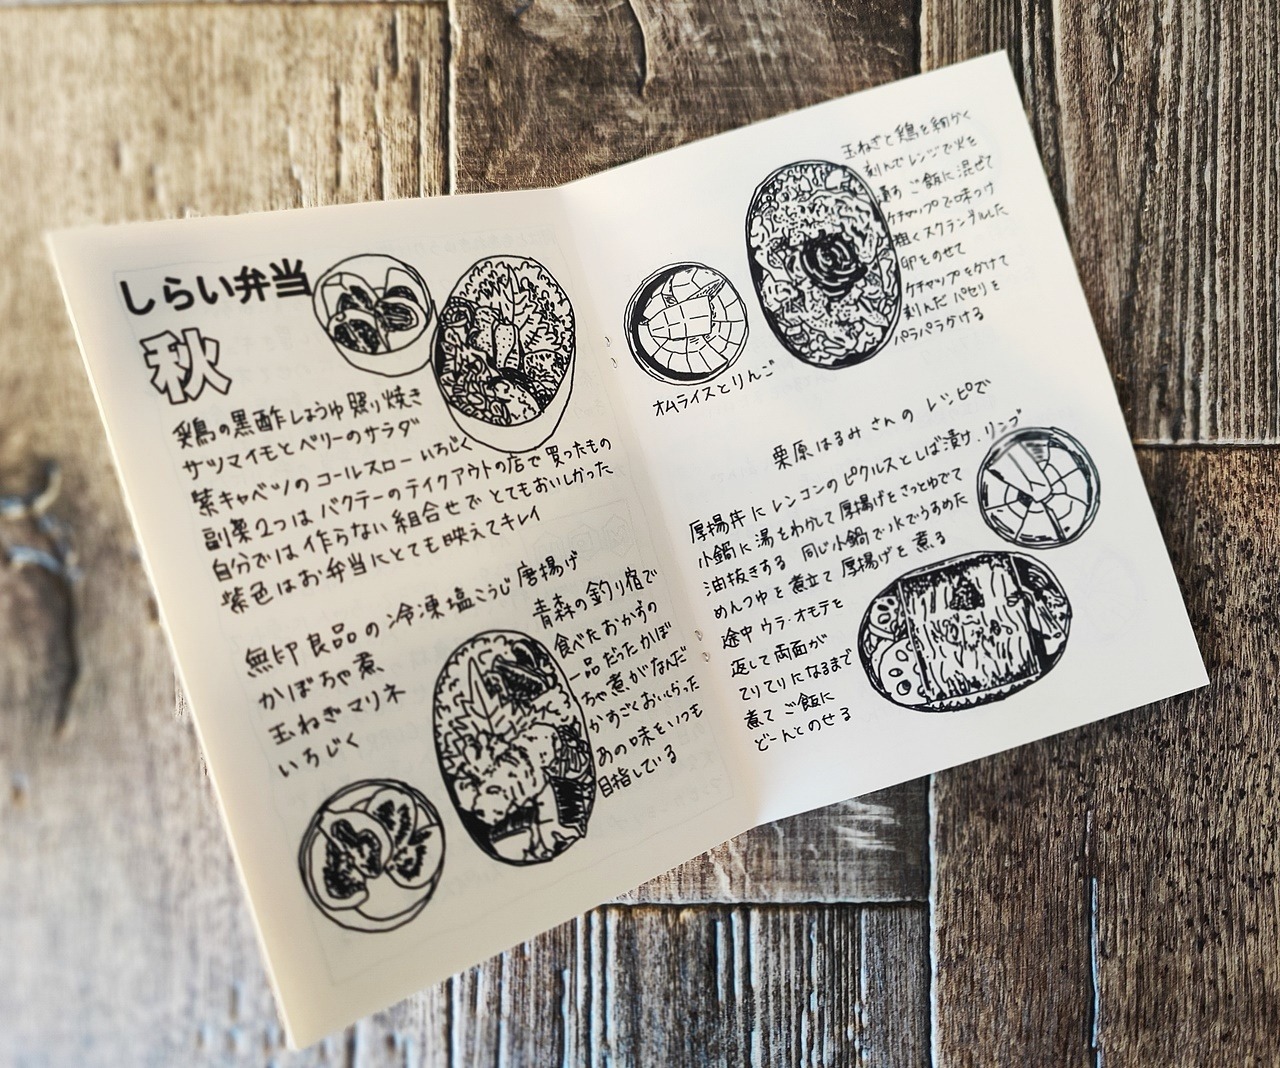 しらい弁当
秋
鶏の黒酢しょうゆ照り焼き
サツマイモとベリーのサラダ
紫キャベツのコールスロー いちじく
副菜2つはバクテーのテイクアウトの店で買ったもの
自分では作らない組合せでとてもおいしかった
紫色はお弁当にとても映えてキレイ
無印良品の冷凍塩こうじ唐揚げ
かぼちゃ煮、
玉ねぎマリネ
いちじく
青森の釣り宿で
食べたおかずの
一品だったかぼ
ちゃ煮がなんだ
かすごくおいしかった
あの味をいつも
目指している
玉ねぎと鶏を細かく
刻んでレンジで火を
通す ご飯に混ぜて
ケチャップで味つけ
粗くスクランブルした
卵をのせて
ケチャップをかけて
刻んだパセリを
パラパラかける
オムライスとりんご
栗原はるみさんのレシピで
厚揚丼にレンコンのピクルスとしば漬け、リンゴ
小鍋に湯をわかして厚揚げをさっとゆでて
油抜きする 同じ小鍋で水でうすめた
めんつゆを煮立て厚揚げを煮る
途中ウラ・オモテを
返して両面が
てりてりになるまで
煮てご飯に
どーんとのせる